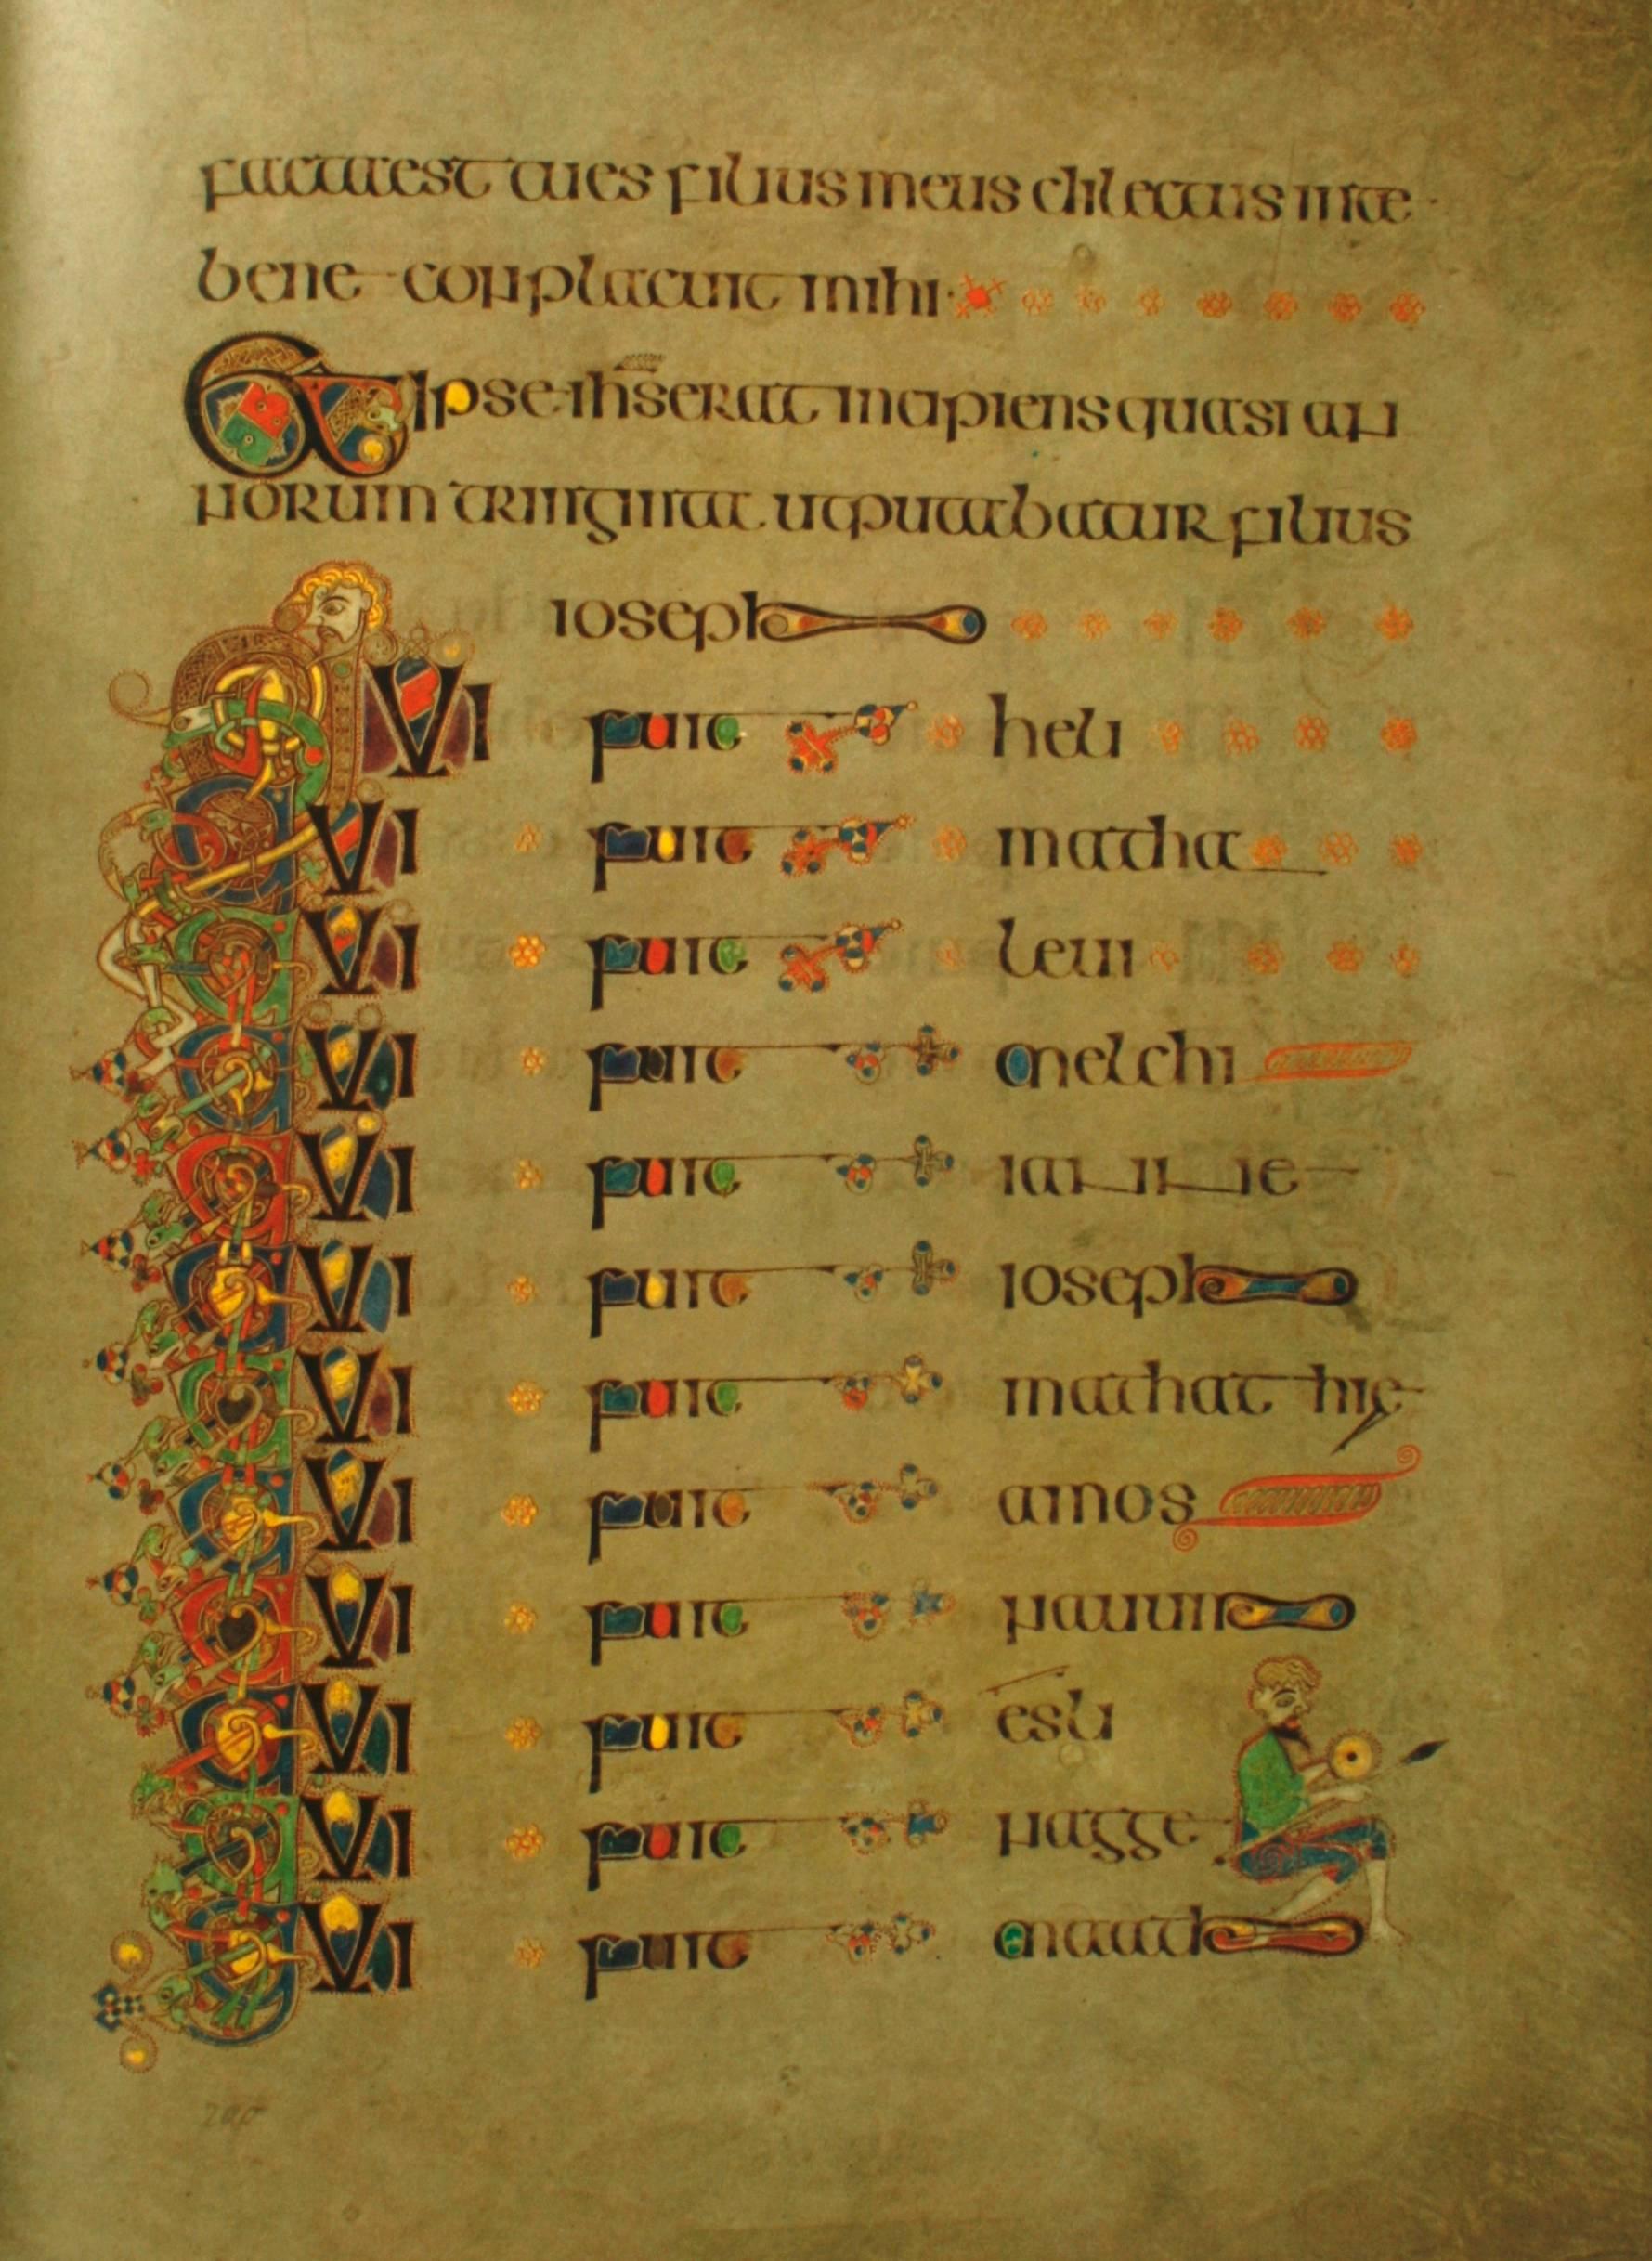 facta est tu es filius meus dilectus in te
bene conplacuit mihi
Et ipse ihs erat incipiens quasi an
norum triginta ut putabatur filius
ioseph
QVI fuit heli
QVI fuit matha
QVI fuit leui
QVI fuit melchi
QVI fuit iannae
QVI fuit ioseph
QVI fuit mathat hie
QVI fuit amos
QVI fuit nauum
QVI fuit esli
QVI fuit nagge
QVI fuit maath